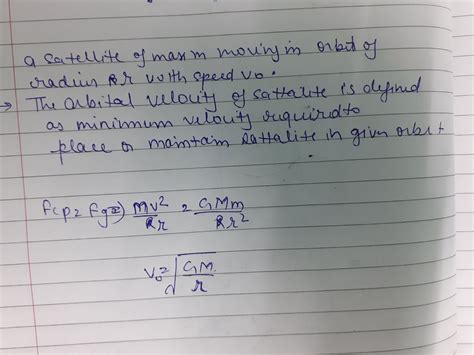 a satellite of mass m moving in orbit of
radius r with speed v₀.
→ The orbital velouty of sattalite is defined
as minimum velouty required to
place or maintain sattalite in given orbit
Fcp = Fg ⇒ mv²/r = GMm/r²
v₀ = √GM/r